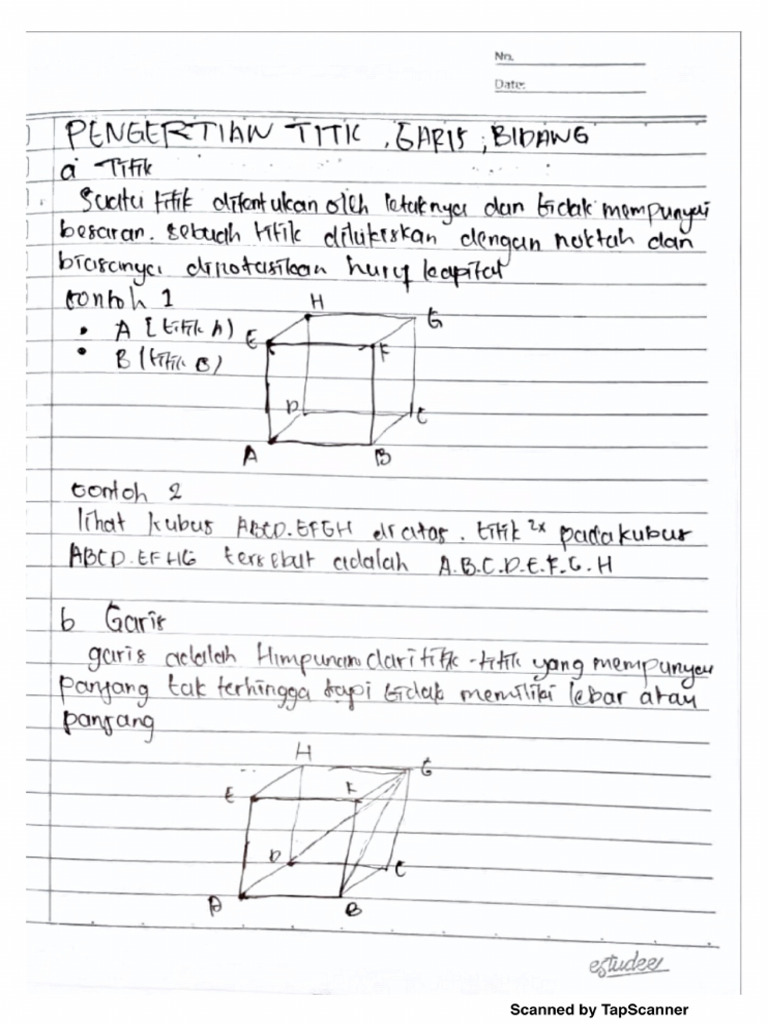 No.
Date:
PENGERTIAN TITIK, GARIS, BIDANG
a Titik
Suatu titik ditentukan oleh letaknya dan tidak mempunyai
besaran. sebuah titik dilukiskan dengan noktah dan
biasanya dinotasikan huruf kapital
contoh 1
H
G
• A (titik A)
E
F
• B (titik B)
D
C
A
B
contoh 2
lihat kubus ABCD.EFGH di atas. titik 2x pada kubus
ABCD.EFHG tersebut adalah A.B.C.D.E.F.G.H
b Garis
garis adalah Himpunan dari titik-titik yang mempunyai
panjang tak terhingga tapi tidak memiliki lebar atau
panjang
H
G
E
F
D
C
A
B
estudee
Scanned by TapScanner